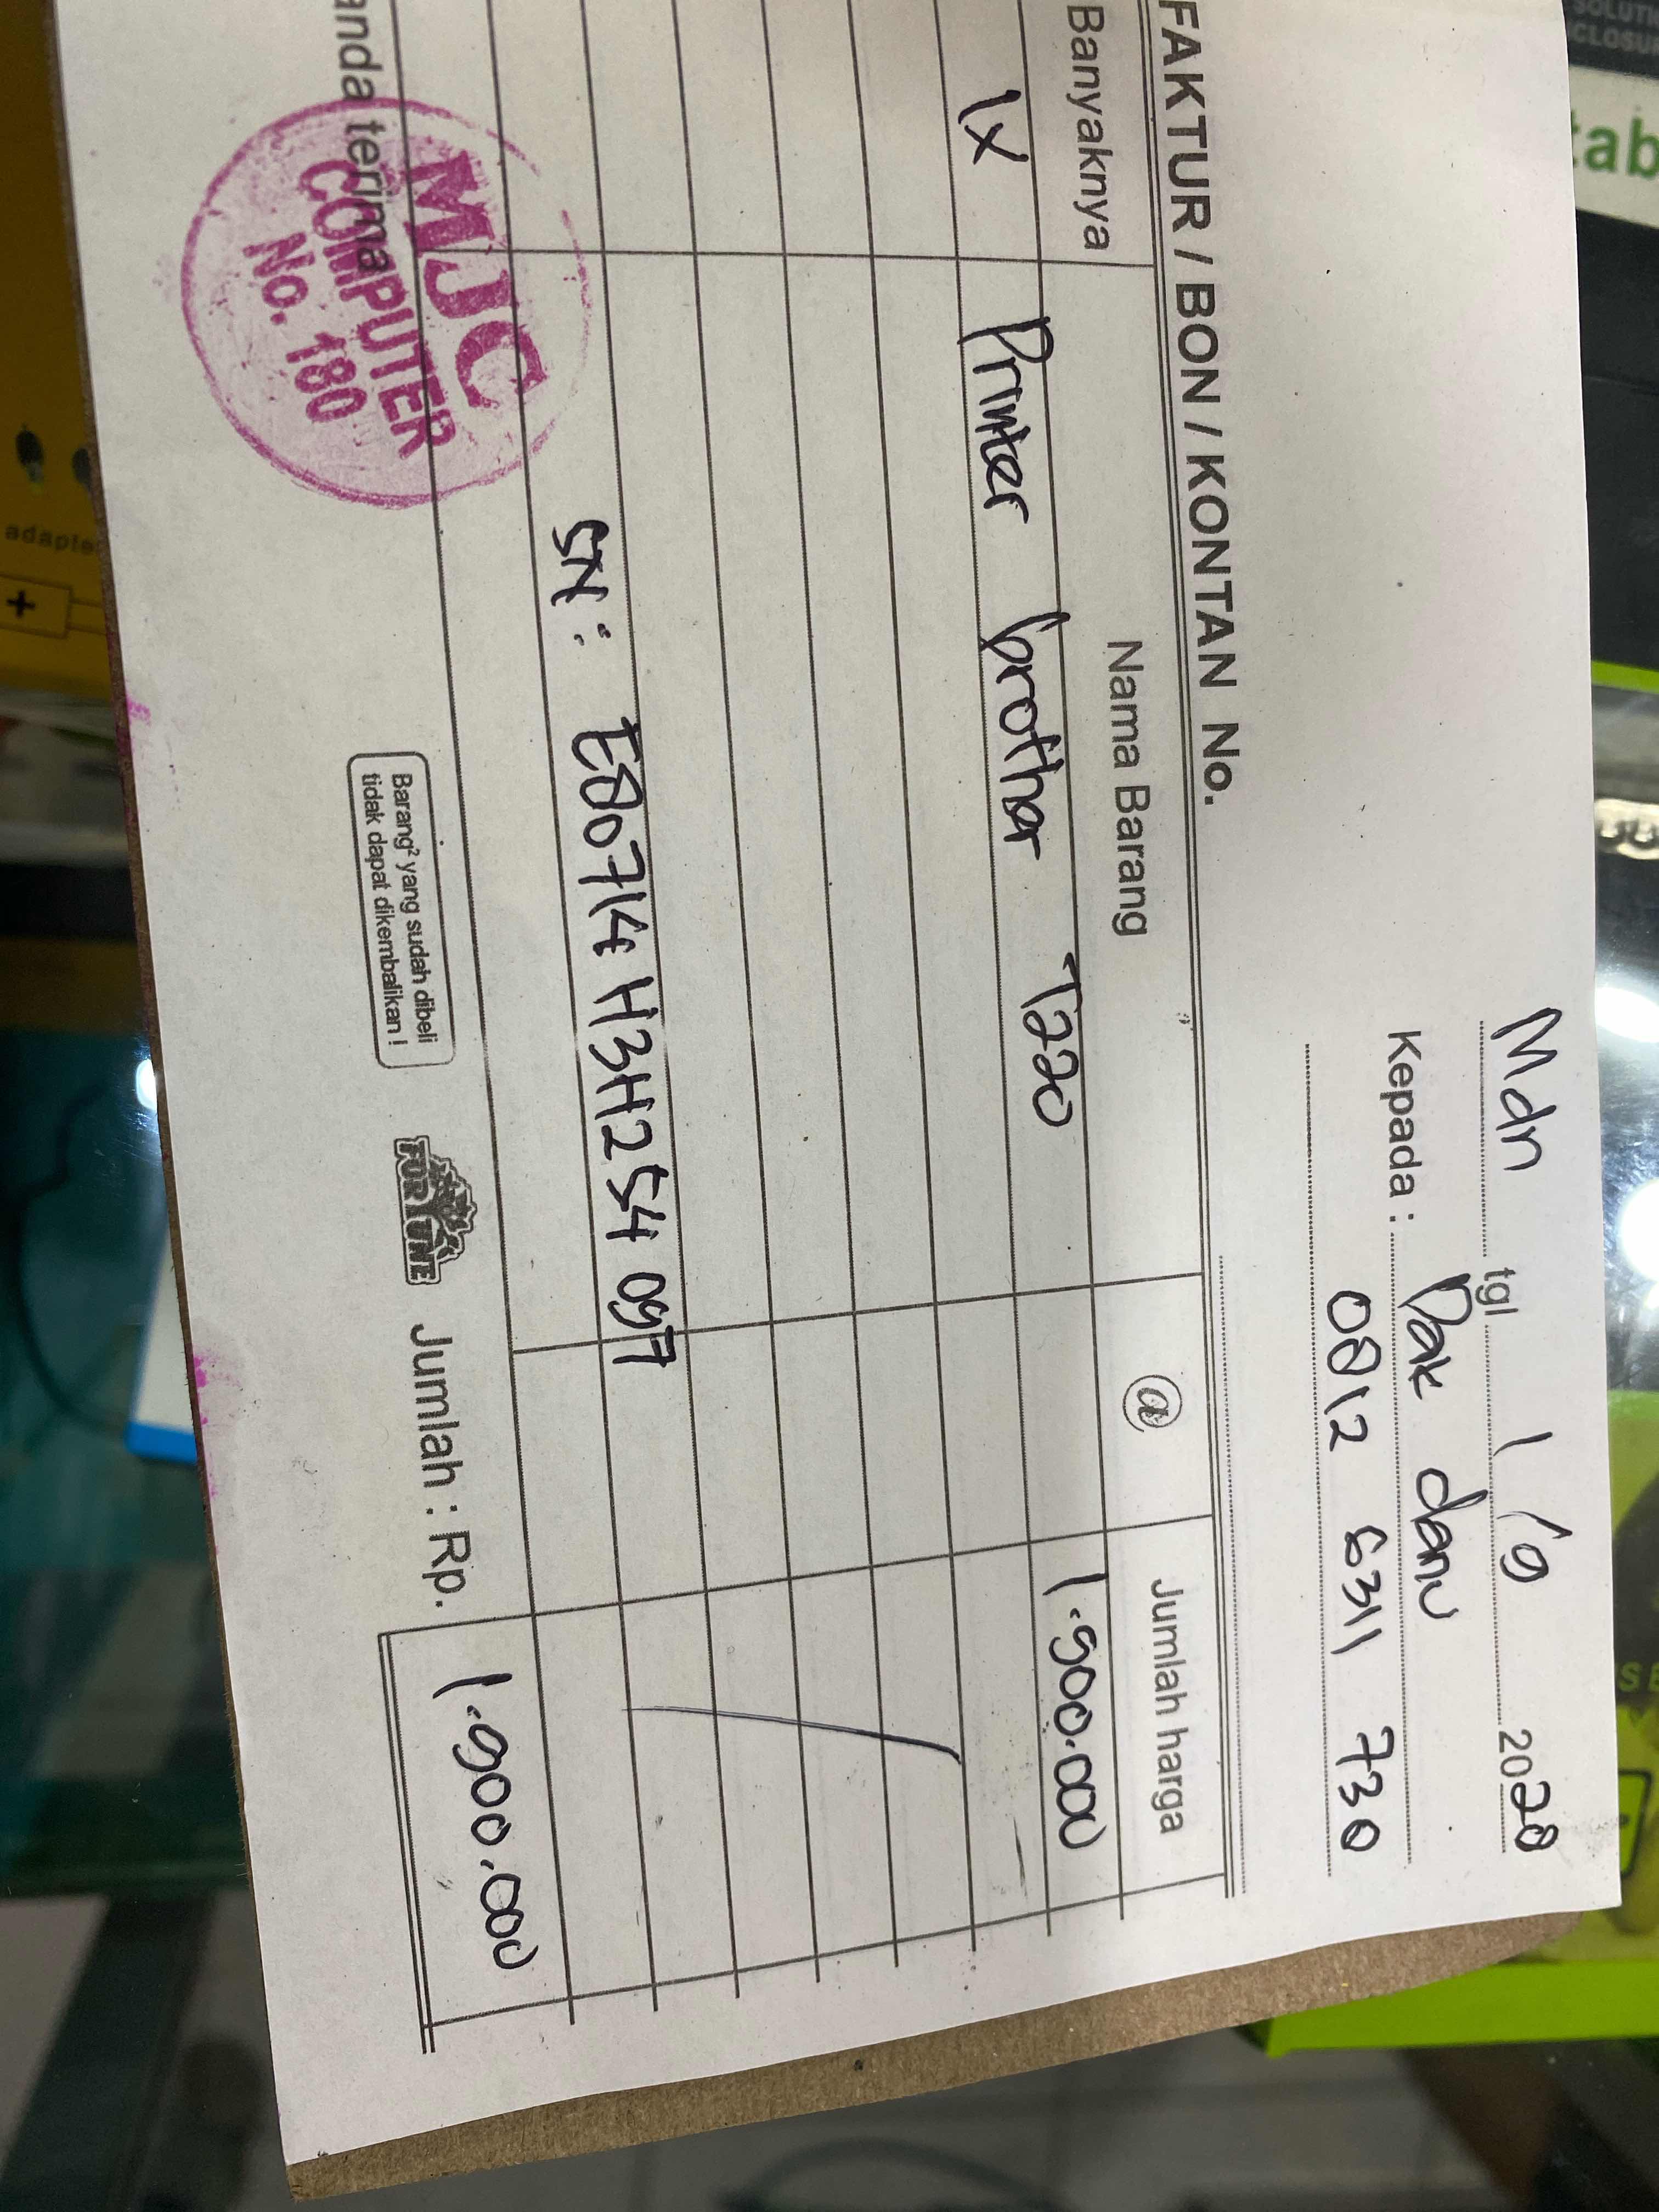 Mdn tgl 1/9 2020
Kepada : Pak danu
0812 6311 730
FAKTUR / BON / KONTAN No.
Banyaknya Nama Barang @ Jumlah harga
1x Printer brother T220 1.900.000
SN : E80714H3H254097
anda terima
Barang² yang sudah dibeli
tidak dapat dikembalikan !
FORTUNE
Jumlah : Rp. 1.900.000
MJC
COMPUTER
No. 180
adapte
tab
SOLUTI
CLOSU